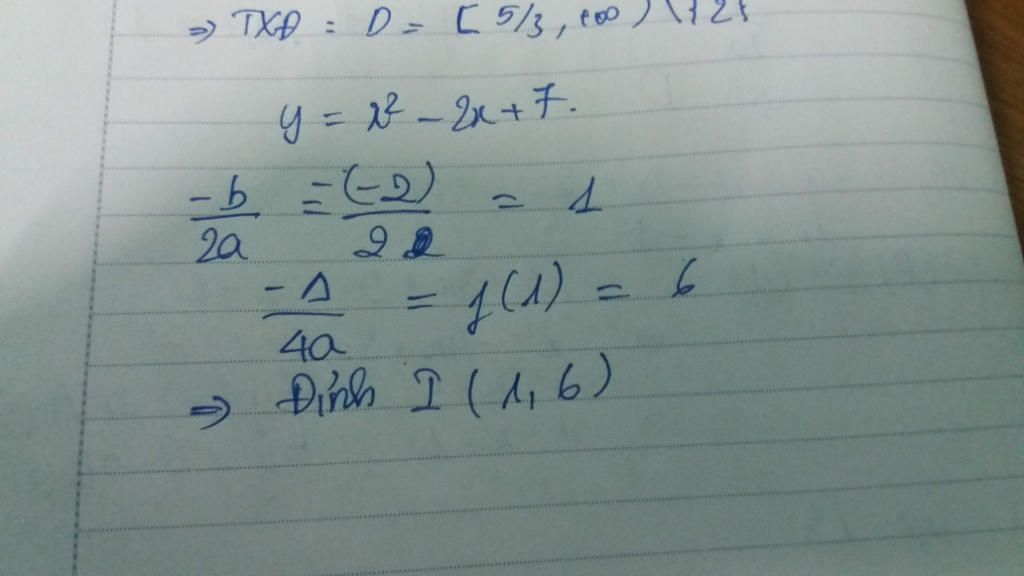 ⇒ TXĐ : D = [ 5/3, +∞ ) \ { 2 }
y = x² - 2x + 7.
-b/2a = -(-2)/2 = 1
-Δ/4a = f(1) = 6
⇒ Đỉnh I ( 1, 6 )